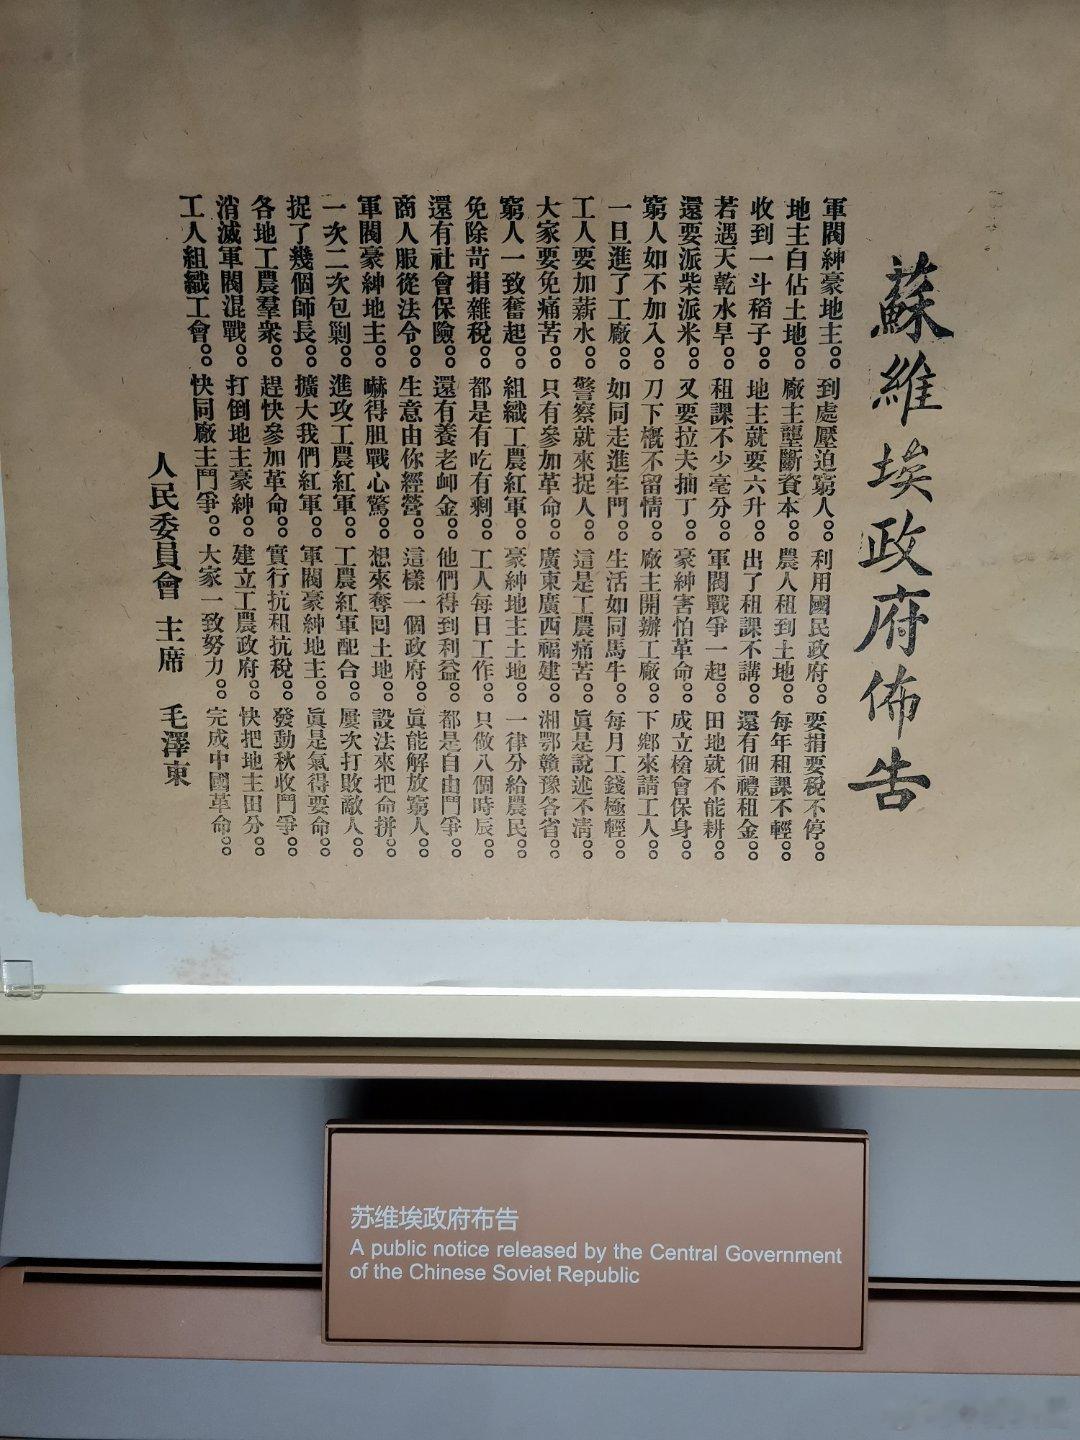 蘇維埃政府佈告
軍閥紳豪地主。。到處壓迫窮人。。利用國民政府。。要捐要稅不停。。
地主白佔土地。。廠主壟斷資本。。農人租到土地。。每年租課不輕。。
收到一斗稻子。。地主就要六升。。出了租課不講。。還有佃禮租金。。
若遇天乾水旱。。租課不少毫分。。軍閥戰爭一起。。田地就不能耕。。
還要派柴派米。。又要拉夫抽丁。。豪紳害怕革命。。成立槍會保身。。
窮人如不加入。。刀下概不留情。。廠主開辦工廠。。下鄉來請工人。。
一旦進了工廠。。如同走進牢門。。生活如同馬牛。。每月工錢極輕。。
工人要加薪水。。警察就來捉人。。這是工農痛苦。。眞是說述不清。。
大家要免痛苦。。只有參加革命。。廣東廣西福建。。湘鄂贛豫各省。。
窮人一致奮起。。組織工農紅軍。。豪紳地主土地。。一律分給農民。。
免除苛捐雜稅。。都是有吃有剩。。工人每日工作。。只做八個時辰。。
還有社會保險。。還有養老卹金。。他們得到利益。。都是自由鬥爭。。
商人服從法令。。生意由你經營。。這樣一個政府。。眞能解放窮人。。
軍閥豪紳地主。。嚇得胆戰心驚。。想來奪回土地。。設法來把命拼。。
一次二次包剿。。進攻工農紅軍。。工農紅軍配合。。屢次打敗敵人。。
捉了幾個師長。。擴大我們紅軍。。軍閥豪紳地主。。眞是氣得要命。。
各地工農羣衆。。趕快參加革命。。實行抗租抗稅。。發動秋收鬥爭。。
消滅軍閥混戰。。打倒地主豪紳。。建立工農政府。。快把地主田分。。
工人組織工會。。快同廠主鬥爭。。大家一致努力。。完成中國革命。。
人民委員會 主席 毛澤東
苏维埃政府布告
A public notice released by the Central Government
of the Chinese Soviet Republic